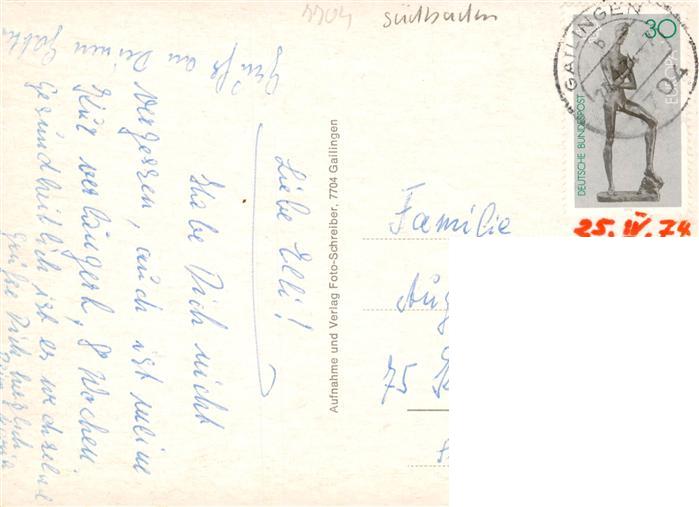 7704 Südbaden
GAILINGEN
30
DEUTSCHE BUNDESPOST
EUROPA
25. IV. 74
Liebe Elli!
Habe Dich nicht
vergessen, auch ist meine
Kur verlängert, 8 Wochen.
Gesundheitlich ist es wechselnd
grüße Dich herzlich
Grüße an Deinen
Aufnahme und Verlag Foto-Schreiber, 7704 Gailingen
Familie
Aug
75